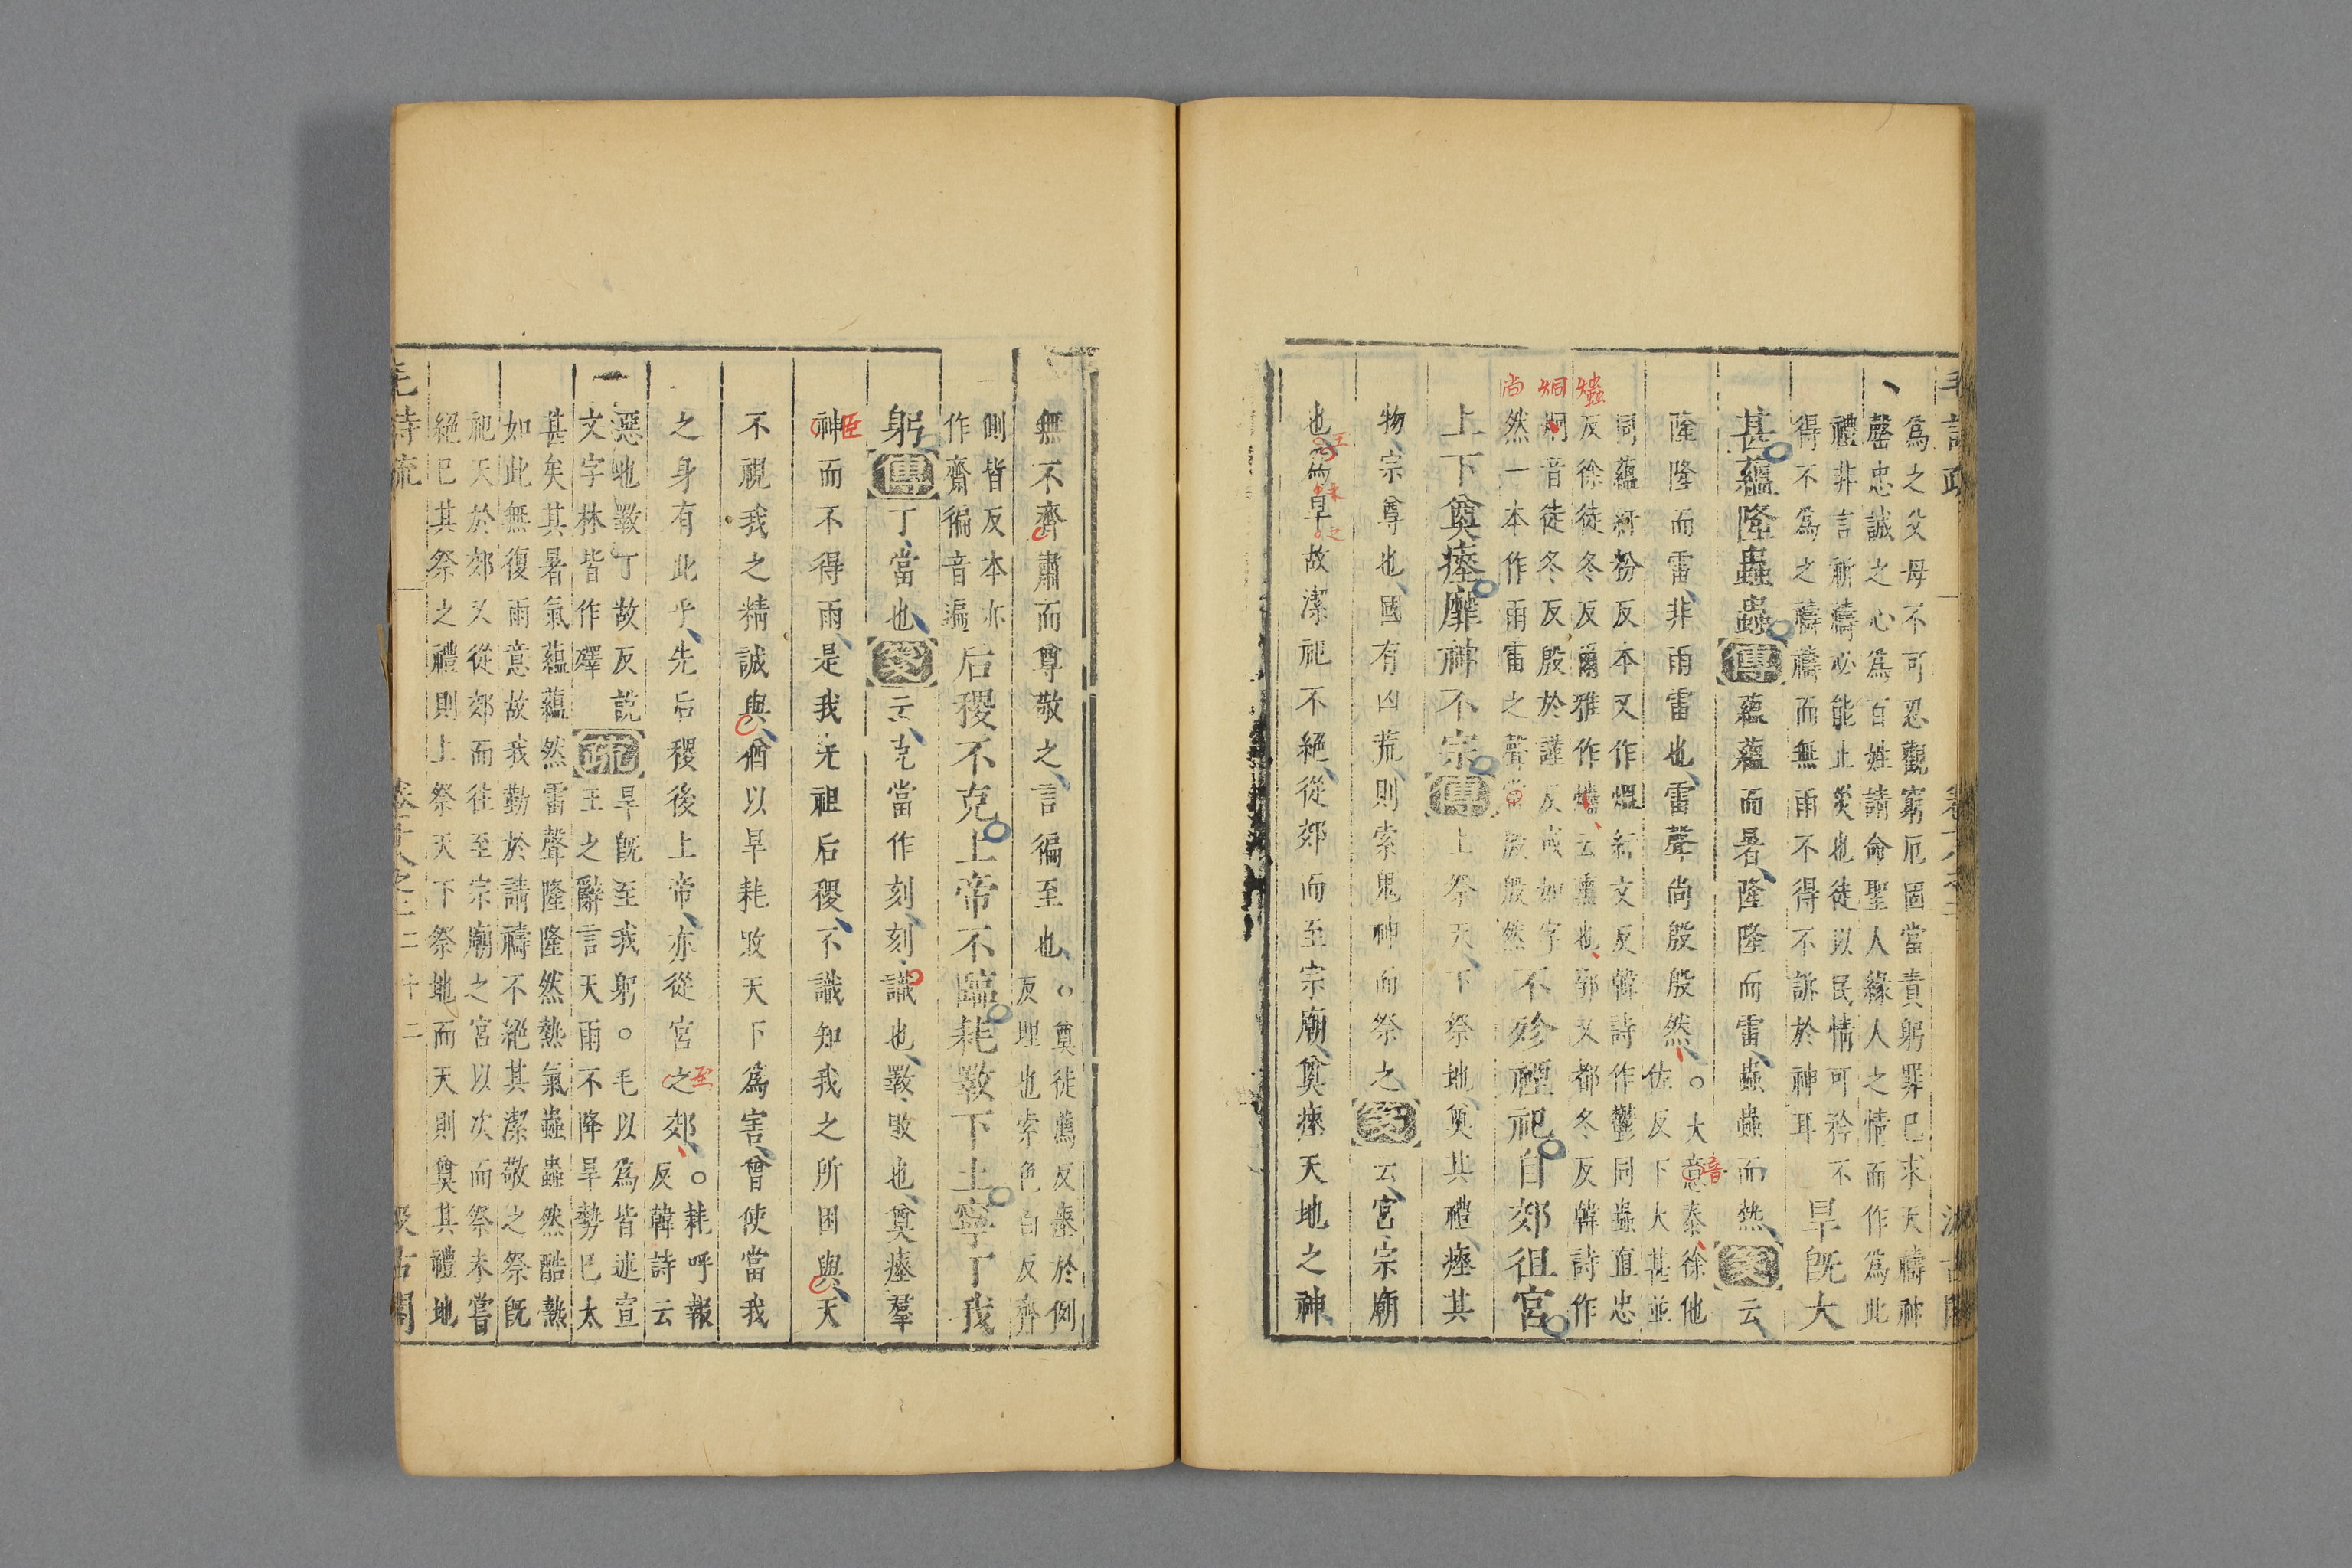 爲之父母不可忍觀窮厄固當責躬罪已求天禱神
罄忠誠之心爲百姓請命聖人緣人之情而作爲此
禮非言祈禱必能止災也徒以民情可矜不
得不爲之禱禱而無雨不得不訴於神耳
旱旣大
甚蘊隆蟲蟲傳蘊蘊而暑隆隆而雷蟲蟲而熱箋云
隆隆而雷非雨雷也雷聲尚殷殷然
○大音泰徐他
佐反下大甚並
同蘊紆粉反本又作熅紆文反韓詩作鬱同蟲直忠
反徐徒冬反爾雅作爞云熏也郭又都冬反韓詩作
炯音徒冬反殷於謹反或如字
然一本作雨雷之聲當殷殷然
不殄禋祀自郊徂宮
上下奠瘞靡神不宗傳上祭天下祭地奠其禮瘞其
物宗尊也國有凶荒則索鬼神而祭之箋云宮宗廟
也爲旱故潔祀不絕從郊而至宗廟奠瘞天地之神
無不齊肅而尊敬之言徧至也
○奠徒薦反瘞於例
反埋也索色白反齊
側皆反本亦
作齋徧音遍
后稷不克上帝不臨耗斁下土寧丁我
躬傳丁當也箋云克當作刻刻識也斁敗也奠瘞羣
神而不得雨是我先祖后稷不識知我之所困與天
不視我之精誠與猶以旱耗敗天下爲害曾使當我
之身有此乎先后稷後上帝亦從宮之郊
○耗呼報
反韓詩云
惡也斁丁故反說
文字林皆作殬
疏旱旣至我躬○毛以爲皆述宣
王之辭言天雨不降旱勢已太
甚矣其暑氣蘊蘊然雷聲隆隆然熱氣蟲蟲然酷熱
如此無復雨意故我勤於請禱不絕其潔敬之祭旣
祀天於郊又從郊而往至宗廟之宮以次而祭未嘗
絕已其祭之禮則上祭天下祭地而天則奠其禮地
毛詩疏
卷十八之二
二十二
汲古閣
爞
炯
尚
音
臣
至